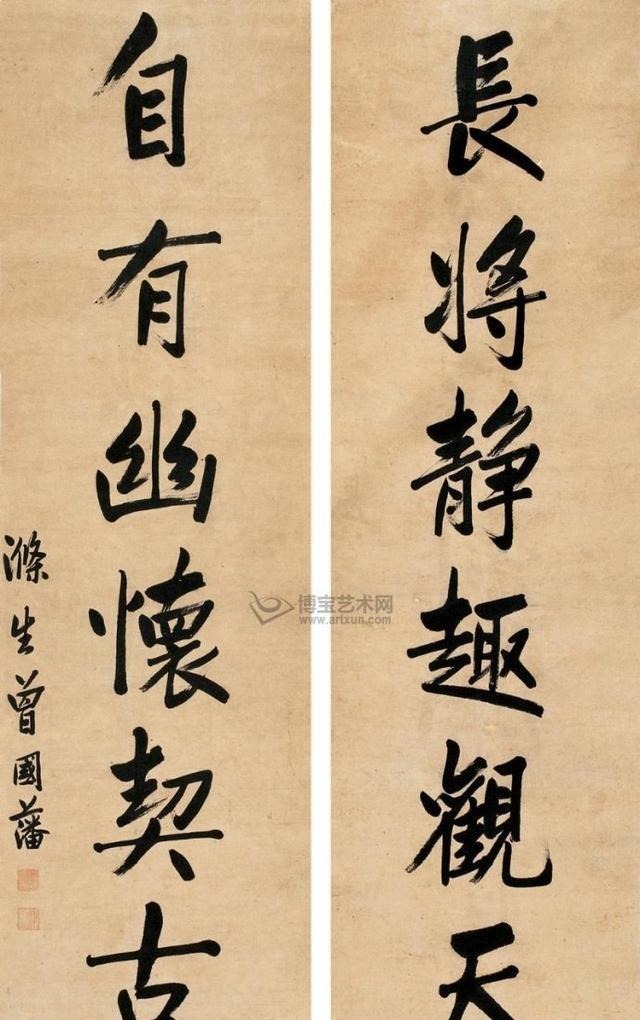 長將静趣觀天
自有幽懷契古
滌生曾國藩
博宝艺术网
www.artxun.com